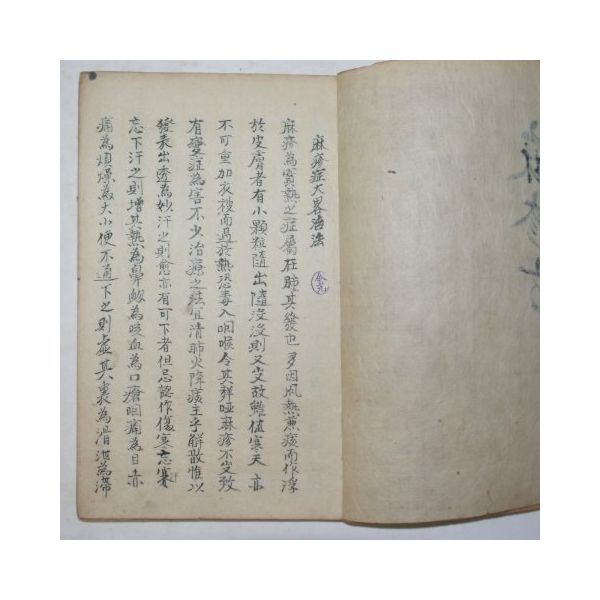 麻疹症大畧治法
麻疹為實熱之症屬在肺其發也多因風熱兼痰而作浮
於皮膚者有小顆粒隨出隨沒沒則又出故雖值寒天亦
不可重加衣被而過於熱恐毒入咽喉令其聲啞麻疹不出致
有變症為害不少治療之法宜清肺火降痰主乎解散惟以
發表出透為妙汗之則愈亦有可下者但忌認作傷寒忘
忘下汗之則增其熱為鼻衄為咳血為口瘡咽痛為目赤
痛為煩燥為大小便不通下之則虛其裏為滑泄為滯